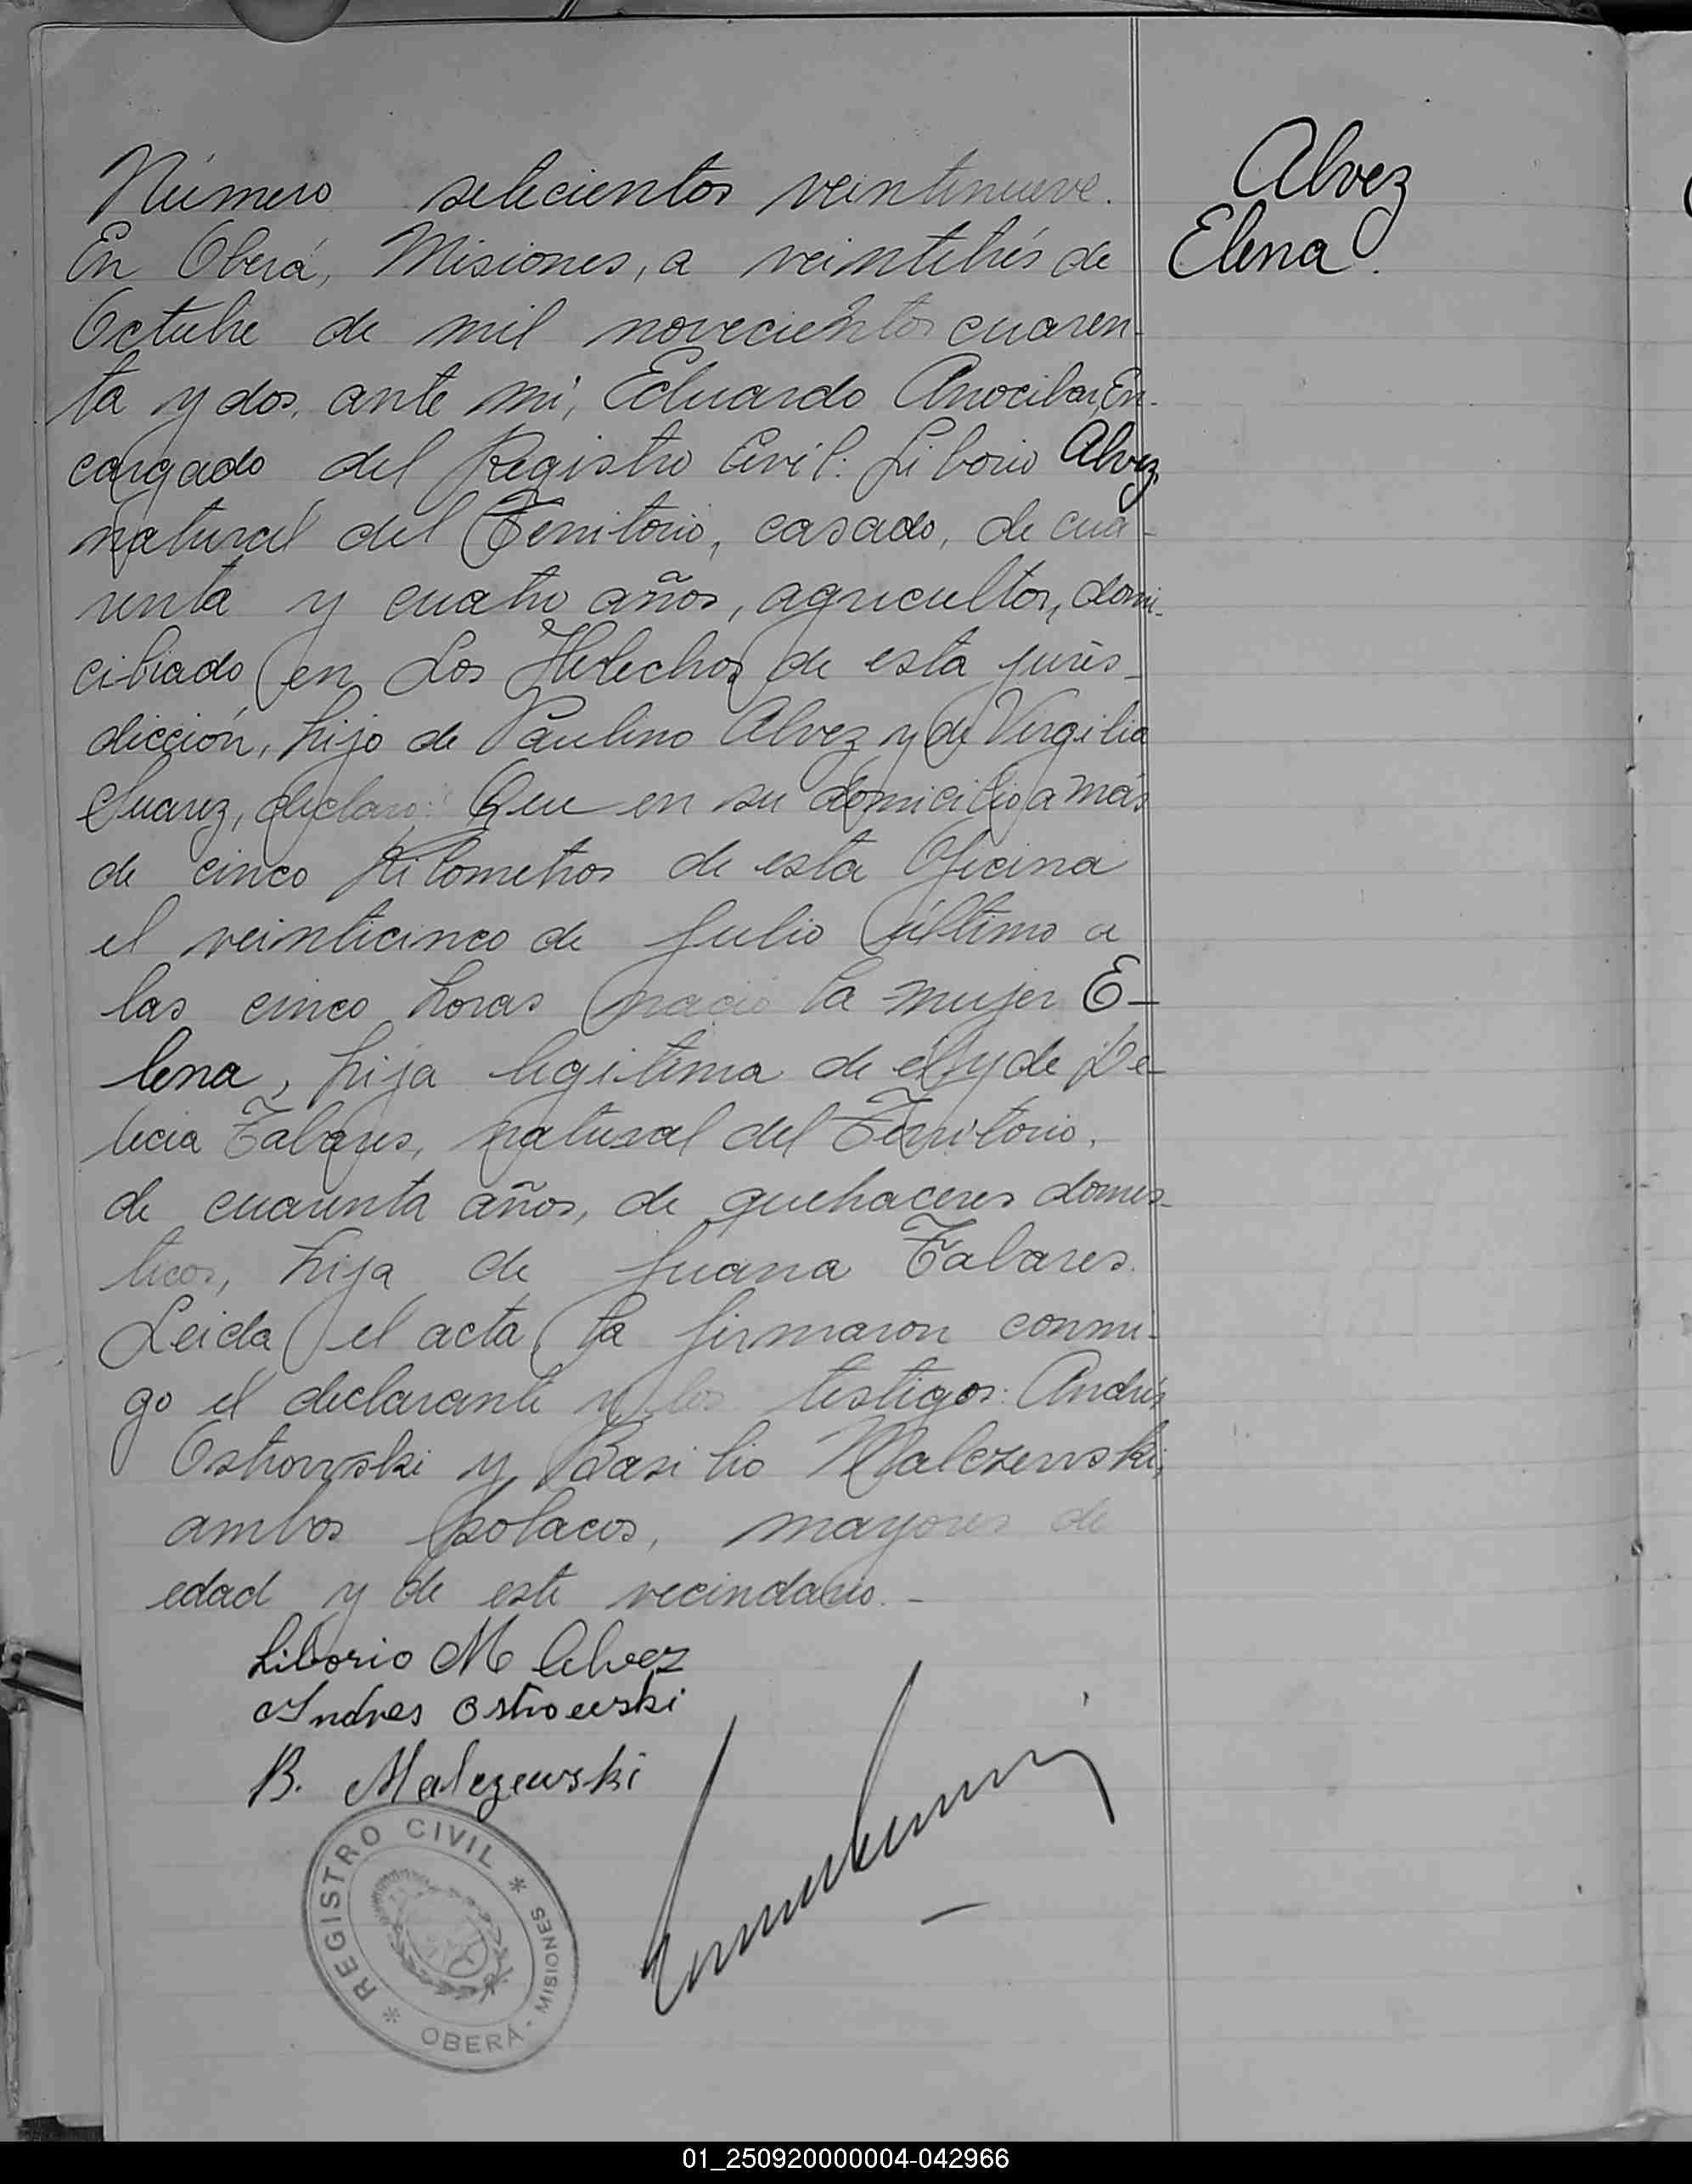 Número setecientos veintinueve.
Alvez
Elena.
En Oberá, Misiones, a veintitrés de
Octubre de mil novecientos cuaren-
ta y dos, ante mi, Eduardo Anocibar, En-
cargado del Registro Civil: Liborio Alvez,
natural del Territorio, casado, de cua-
renta y cuatro años, agricultor, domi-
ciliado en Los Helechos de esta juris-
dicción, hijo de Paulino Alvez y de Virgilia
Suarez, declaro: Que en su domicilio a más
de cinco Kilometros de esta Oficina
el veinticinco de Julio último a
las cinco horas nació la mujer E-
lena, hija legitima de él y de De-
licia Tabares, natural del Territorio,
de cuarenta años, de quehaceres domes-
ticos, hija de Juana Tabares.
Leida el acta, la firmaron conmi-
go el declarante y los testigos: Andrés
Ostrowski y Basilio Malczewski,
ambos polacos, mayores de
edad y de este vecindario.-
Liborio M Alvez
Andres Ostrowski
B. Malczewski
* REGISTRO CIVIL *
OBERÁ - MISIONES
01_250920000004-042966